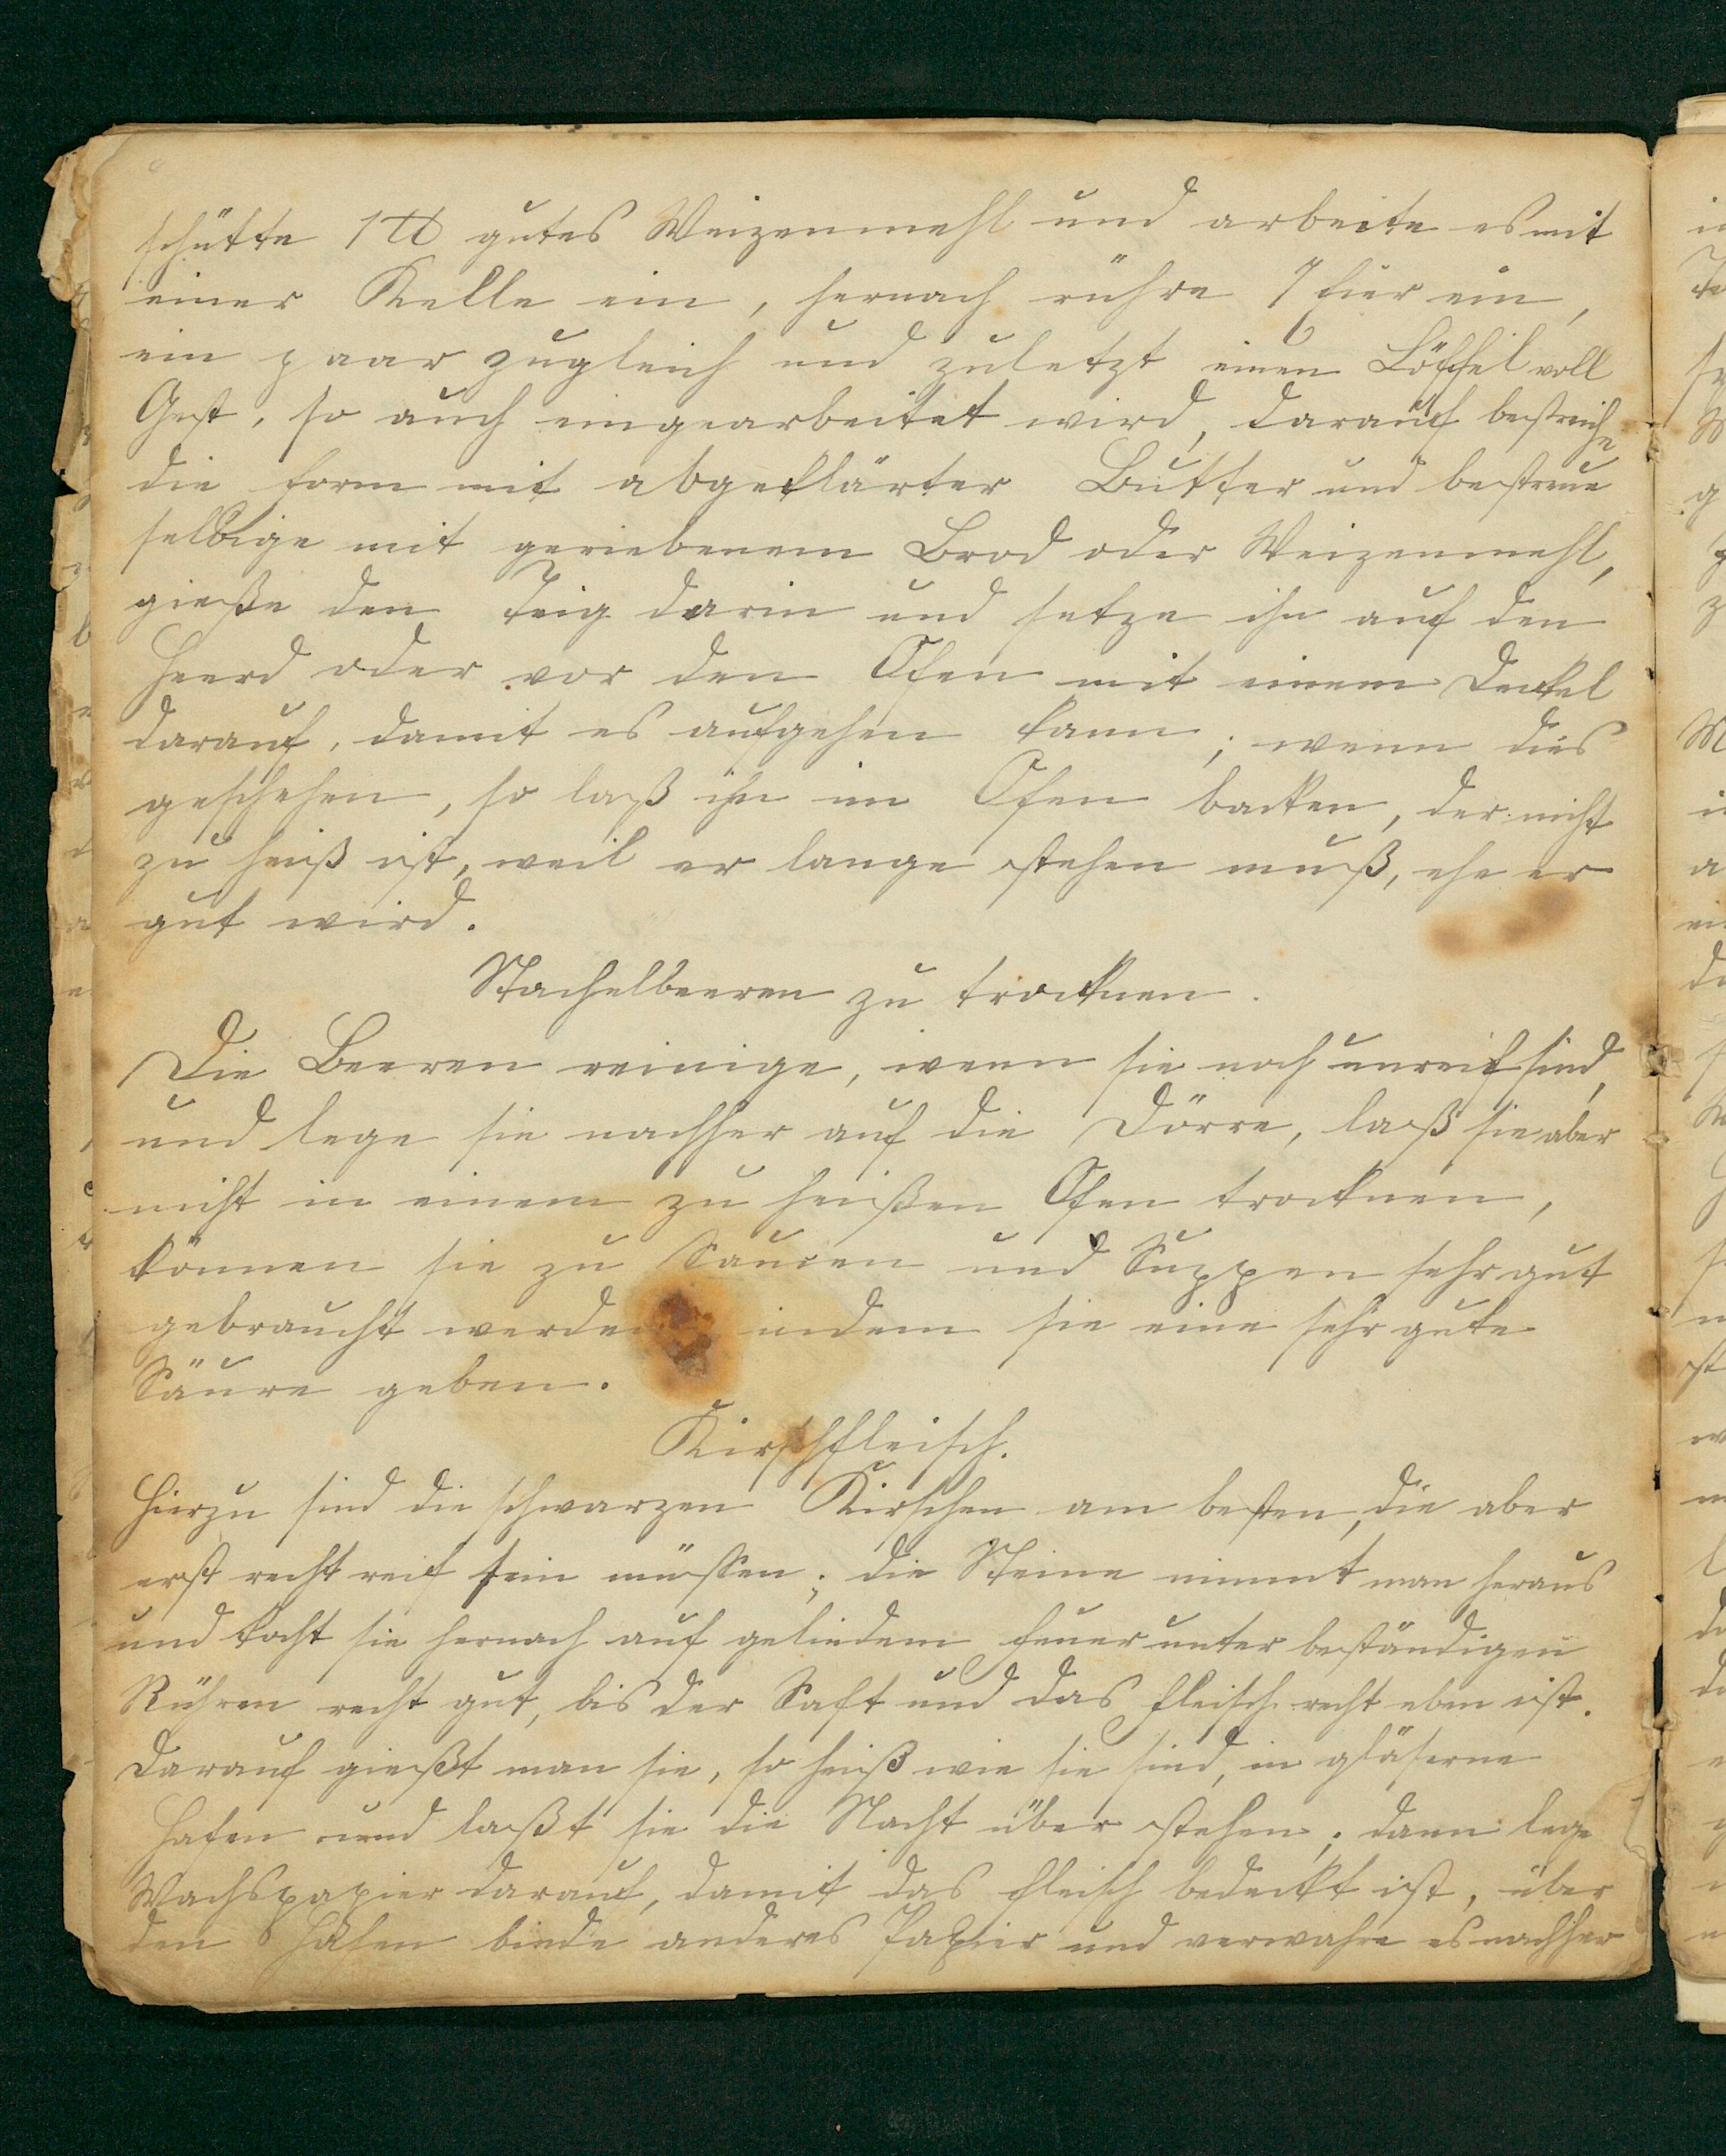 schütte 1 ℔ gutes Weizenmehl und arbeite es mit
einer Kelle ein, hernach rühre 7 Eier ein,
ein paar zugleich und zuletzt einen Löffel voll
Gest, so auch eingearbeitet wird, darauf bestreiche
die Form mit abgeklärter Butter und bestreue
selbige mit geriebenem Brod oder Weizenmehl,
gieße den Teig darin und setze ihn auf den
Heerd oder vor den Ofen mit einem Deckel
darauf, damit es aufgehen kann; wenn dies
geschehen, so laß ihn im Ofen backen, der nicht
zu heiß ist, weil er lange stehen muß, ehe er
gut wird.
Stachelbeeren zu trocknen.
Die Beeren reinige, wenn sie noch unreif sind,
und lege sie nachher auf die Dörre, laß sie aber
nicht in einem zu heißen Ofen trocknen,
können sie zu Saucen und Suppen sehr gut
gebraucht werden indem sie eine sehr gute
Säure geben.
Kirschfleisch.
Hierzu sind die schwarzen Kirschen am besten, die aber
erst recht reif sein müssen; die Steine nimmt man heraus
und kocht sie hernach auf gelindem Feuer unter beständigen
Rühren recht gut, bis der Saft und das Fleisch recht eben ist.
Darauf gießt man sie, so heiß wie sie sind, in gläserne
Hafen und laßt sie die Nacht über stehen; dann lege
Wachspapier darauf, damit das Fleisch bedeckt ist, über
den Hafen binde anderes Papier und verwahre es nachher